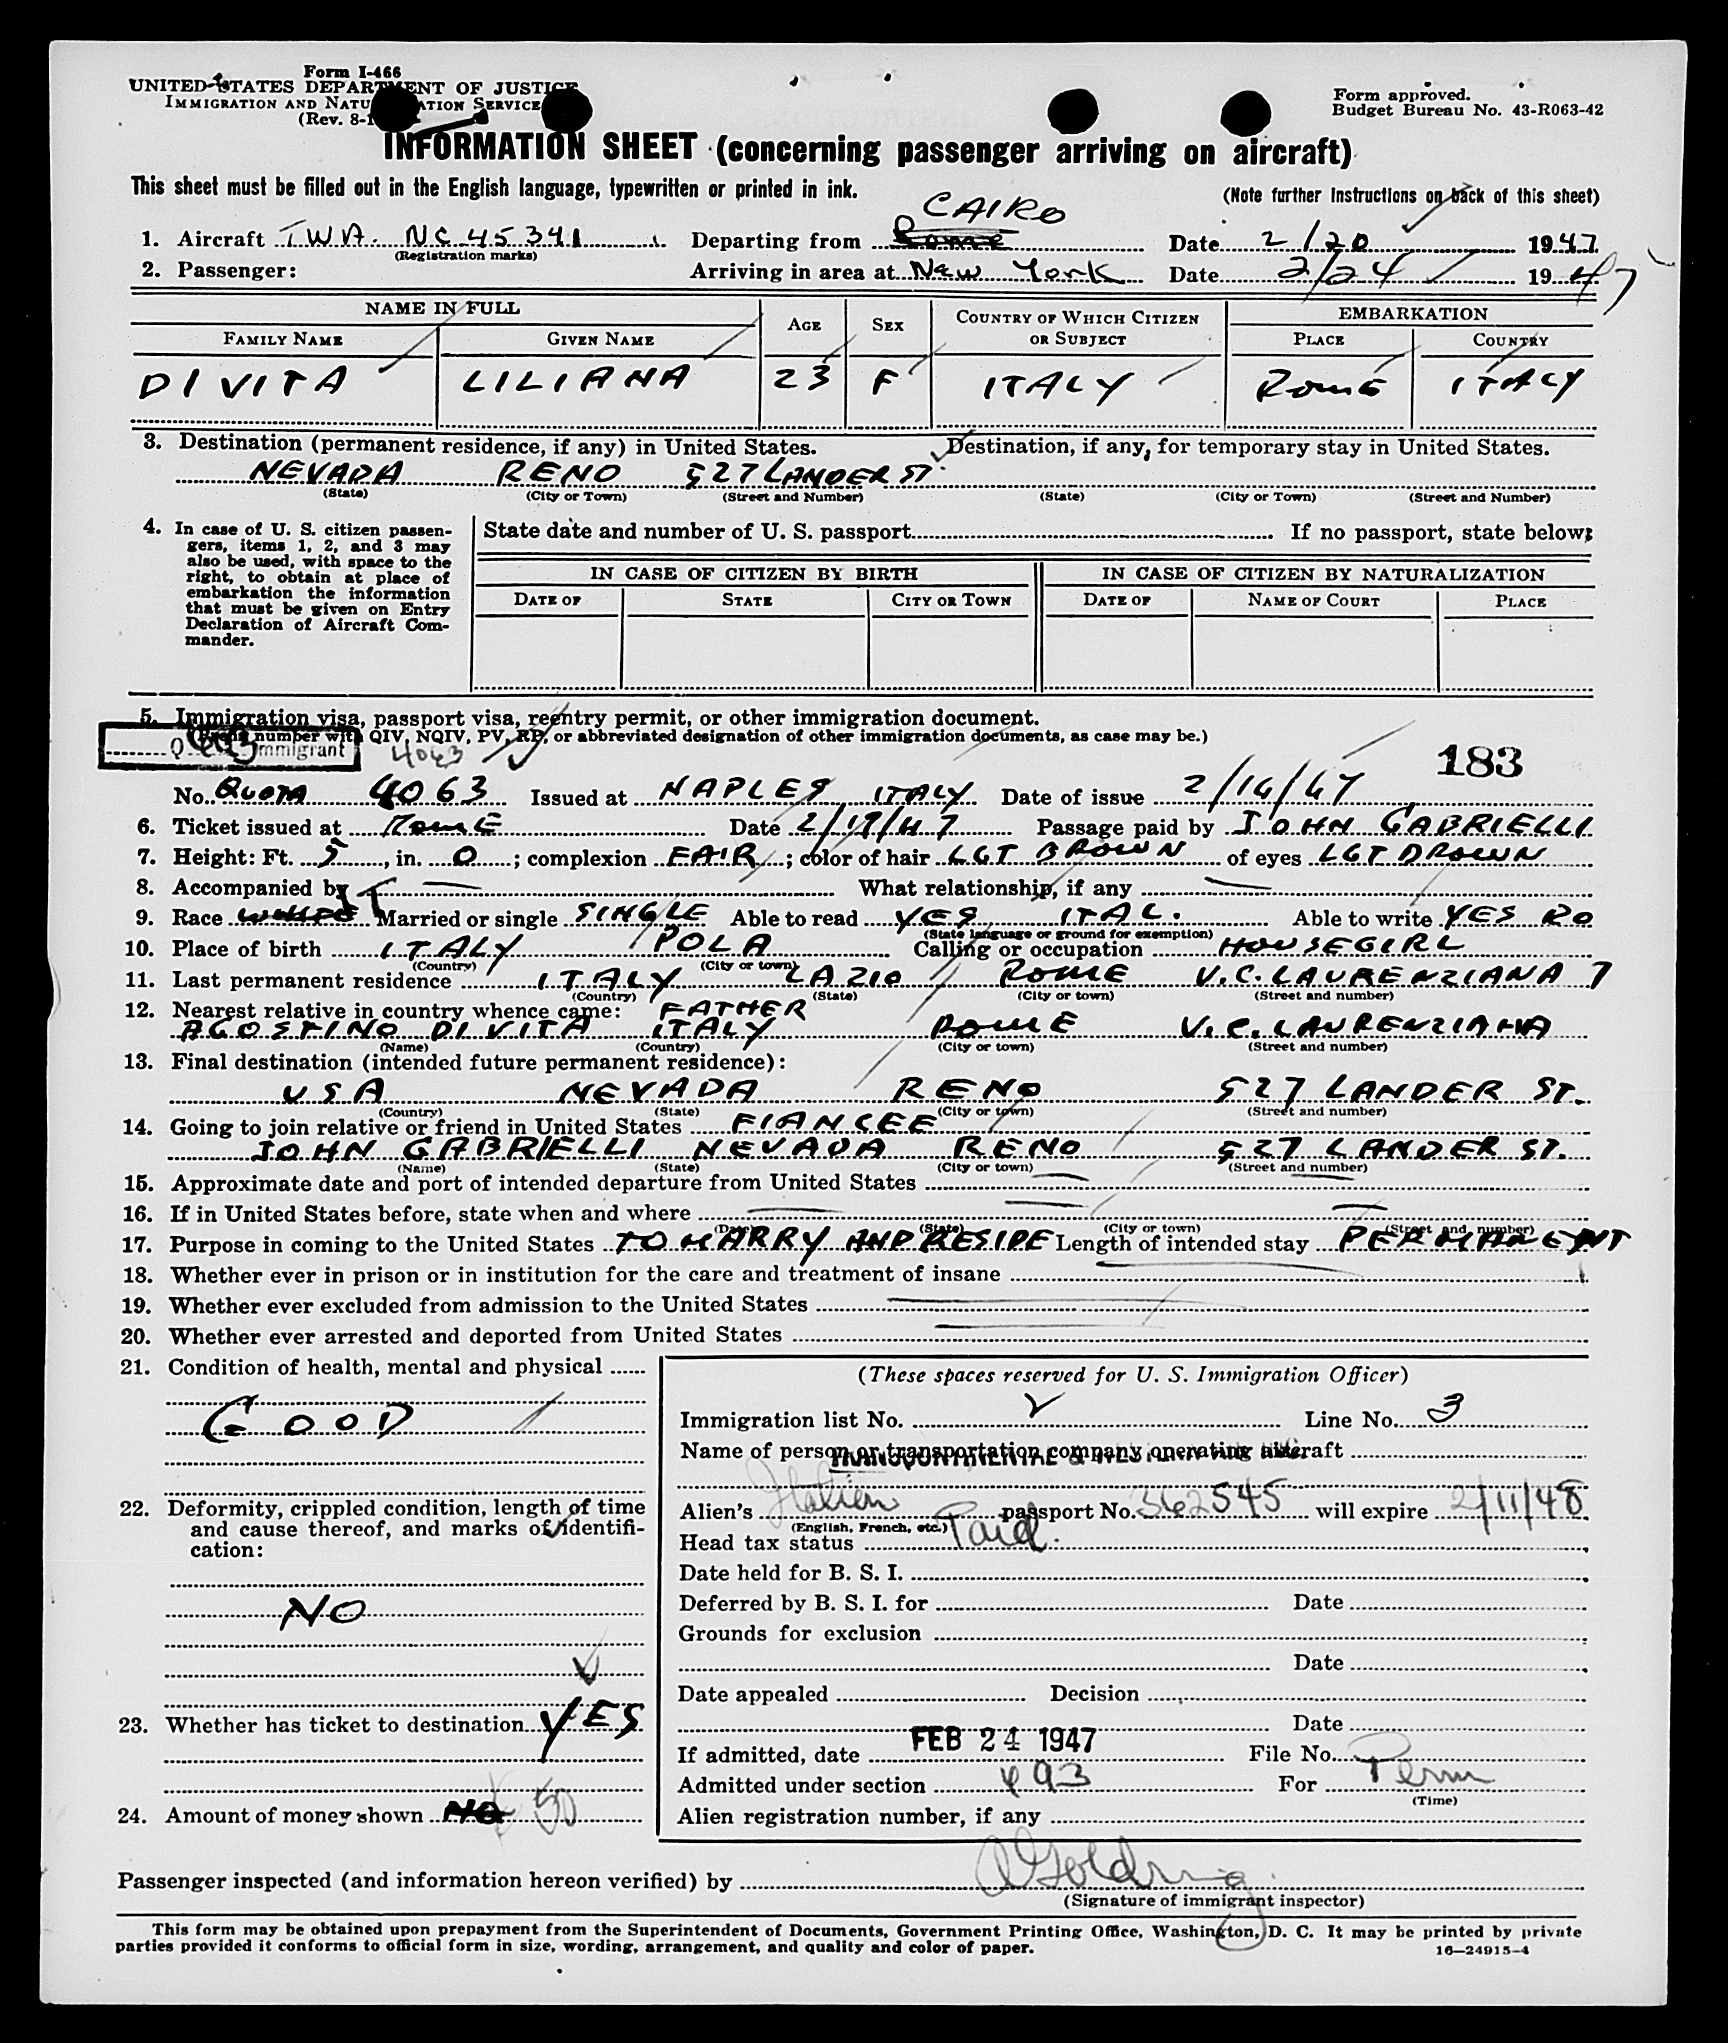 Form I-466
UNITED STATES DEPARTMENT OF JUSTICE
IMMIGRATION AND NATU ATION SERVICE
(Rev. 8-1
Form approved.
Budget Bureau No. 43-R063-42
INFORMATION SHEET (concerning passenger arriving on aircraft)
This sheet must be filled out in the English language, typewritten or printed in ink.
(Note further instructions on back of this sheet)
CAIRO
1. Aircraft TWA. NC 45341 Departing from Rome Date 2/20 1947
(Registration marks)
2. Passenger: Arriving in area at New York Date 2/24 1947
NAME IN FULL AGE SEX COUNTRY OF WHICH CITIZEN OR SUBJECT EMBARKATION
FAMILY NAME GIVEN NAME PLACE COUNTRY
DI VITA LILIANA 23 F ITALY ROME ITALY
3. Destination (permanent residence, if any) in United States. Destination, if any, for temporary stay in United States.
NEVADA RENO 527 LANDER ST.
(State) (City or Town) (Street and Number) (State) (City or Town) (Street and Number)
4. In case of U. S. citizen passengers, items 1, 2, and 3 may also be used, with space to the right, to obtain at place of embarkation the information that must be given on Entry Declaration of Aircraft Commander.
State date and number of U. S. passport If no passport, state below:
IN CASE OF CITIZEN BY BIRTH IN CASE OF CITIZEN BY NATURALIZATION
DATE OF STATE CITY OR TOWN DATE OF NAME OF COURT PLACE
5. Immigration visa, passport visa, reentry permit, or other immigration document.
number with QIV, NQIV, PV, RP, or abbreviated designation of other immigration documents, as case may be.)
Q immigrant 4063
183
No. QUOTA 4063 Issued at NAPLES ITALY Date of issue 2/14/47
6. Ticket issued at ROME Date 2/17/47 Passage paid by JOHN GABRIELLI
7. Height: Ft. 5, in. 0; complexion FAIR; color of hair LGT BROWN of eyes LGT BROWN
8. Accompanied by — What relationship, if any —
9. Race WHITE IT Married or single SINGLE Able to read YES ITAL. Able to write YES
(State language or ground for exemption)
10. Place of birth ITALY POLA Calling or occupation HOUSEGIRL
(Country) (City or town)
11. Last permanent residence ITALY LAZIO ROME V.C. LAURENZIANA 7
(Country) (State) (City or town) (Street and number)
12. Nearest relative in country whence came: FATHER
AGOSTINO DI VITA ITALY ROME V.C. LAURENZIANA
(Name) (Country) (City or town) (Street and number)
13. Final destination (intended future permanent residence):
USA NEVADA RENO 527 LANDER ST.
(Country) (State) (City or town) (Street and number)
14. Going to join relative or friend in United States FIANCEE
JOHN GABRIELLI NEVADA RENO 527 LANDER ST.
(Name) (State) (City or town) (Street and number)
15. Approximate date and port of intended departure from United States —
16. If in United States before, state when and where —
(Date) (State) (City or town) (Street and number)
17. Purpose in coming to the United States TO MARRY AND RESIDE Length of intended stay PERMANENT
18. Whether ever in prison or in institution for the care and treatment of insane —
19. Whether ever excluded from admission to the United States —
20. Whether ever arrested and deported from United States —
21. Condition of health, mental and physical
GOOD
22. Deformity, crippled condition, length of time and cause thereof, and marks of identification:
NO
23. Whether has ticket to destination YES
24. Amount of money shown NO 50
(These spaces reserved for U. S. Immigration Officer)
Immigration list No. Line No. 3
Name of person or transportation company operating aircraft
TRANSCONTINENTAL & WESTERN
Alien's Italien passport No. 362545 will expire 2/11/48
(English, French, etc.)
Head tax status Paid.
Date held for B. S. I.
Deferred by B. S. I. for Date
Grounds for exclusion
Date
Date appealed Decision
Date
If admitted, date FEB 24 1947 File No.
Admitted under section 493 For Perm
(Time)
Alien registration number, if any
Passenger inspected (and information hereon verified) by
(Signature of immigrant inspector)
This form may be obtained upon prepayment from the Superintendent of Documents, Government Printing Office, Washington, D. C. It may be printed by private
parties provided it conforms to official form in size, wording, arrangement, and quality and color of paper.
16—24915-4